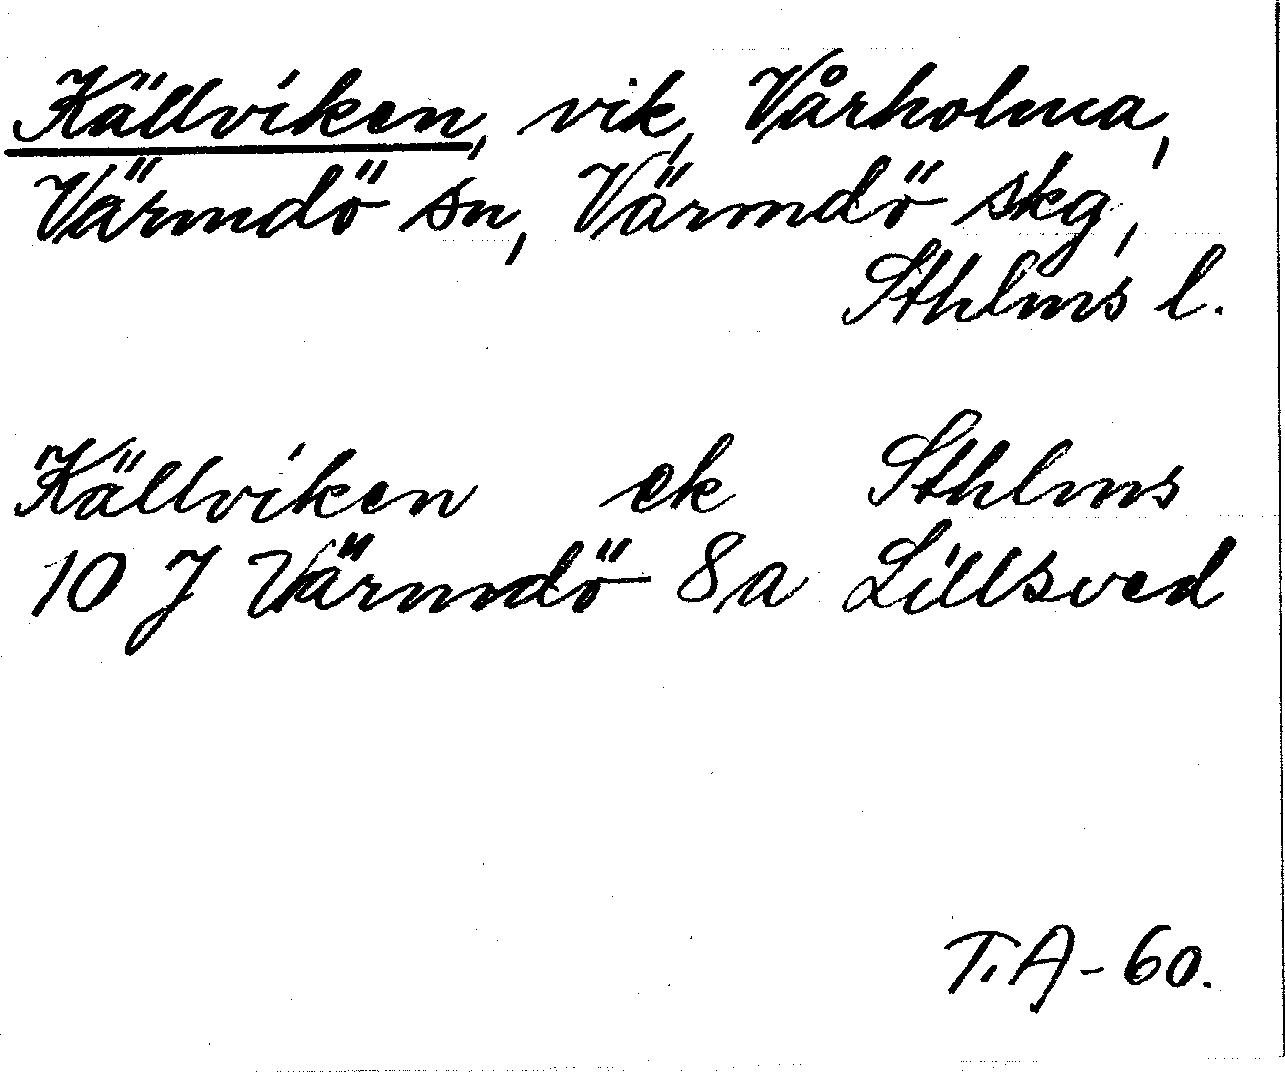 Källviken, vik, Vårholma,
Värmdö sn, Värmdö skg,
Sthlms l.
Källviken ek Sthlms
10 J Värmdö 8a Lillsved
T.A-60.